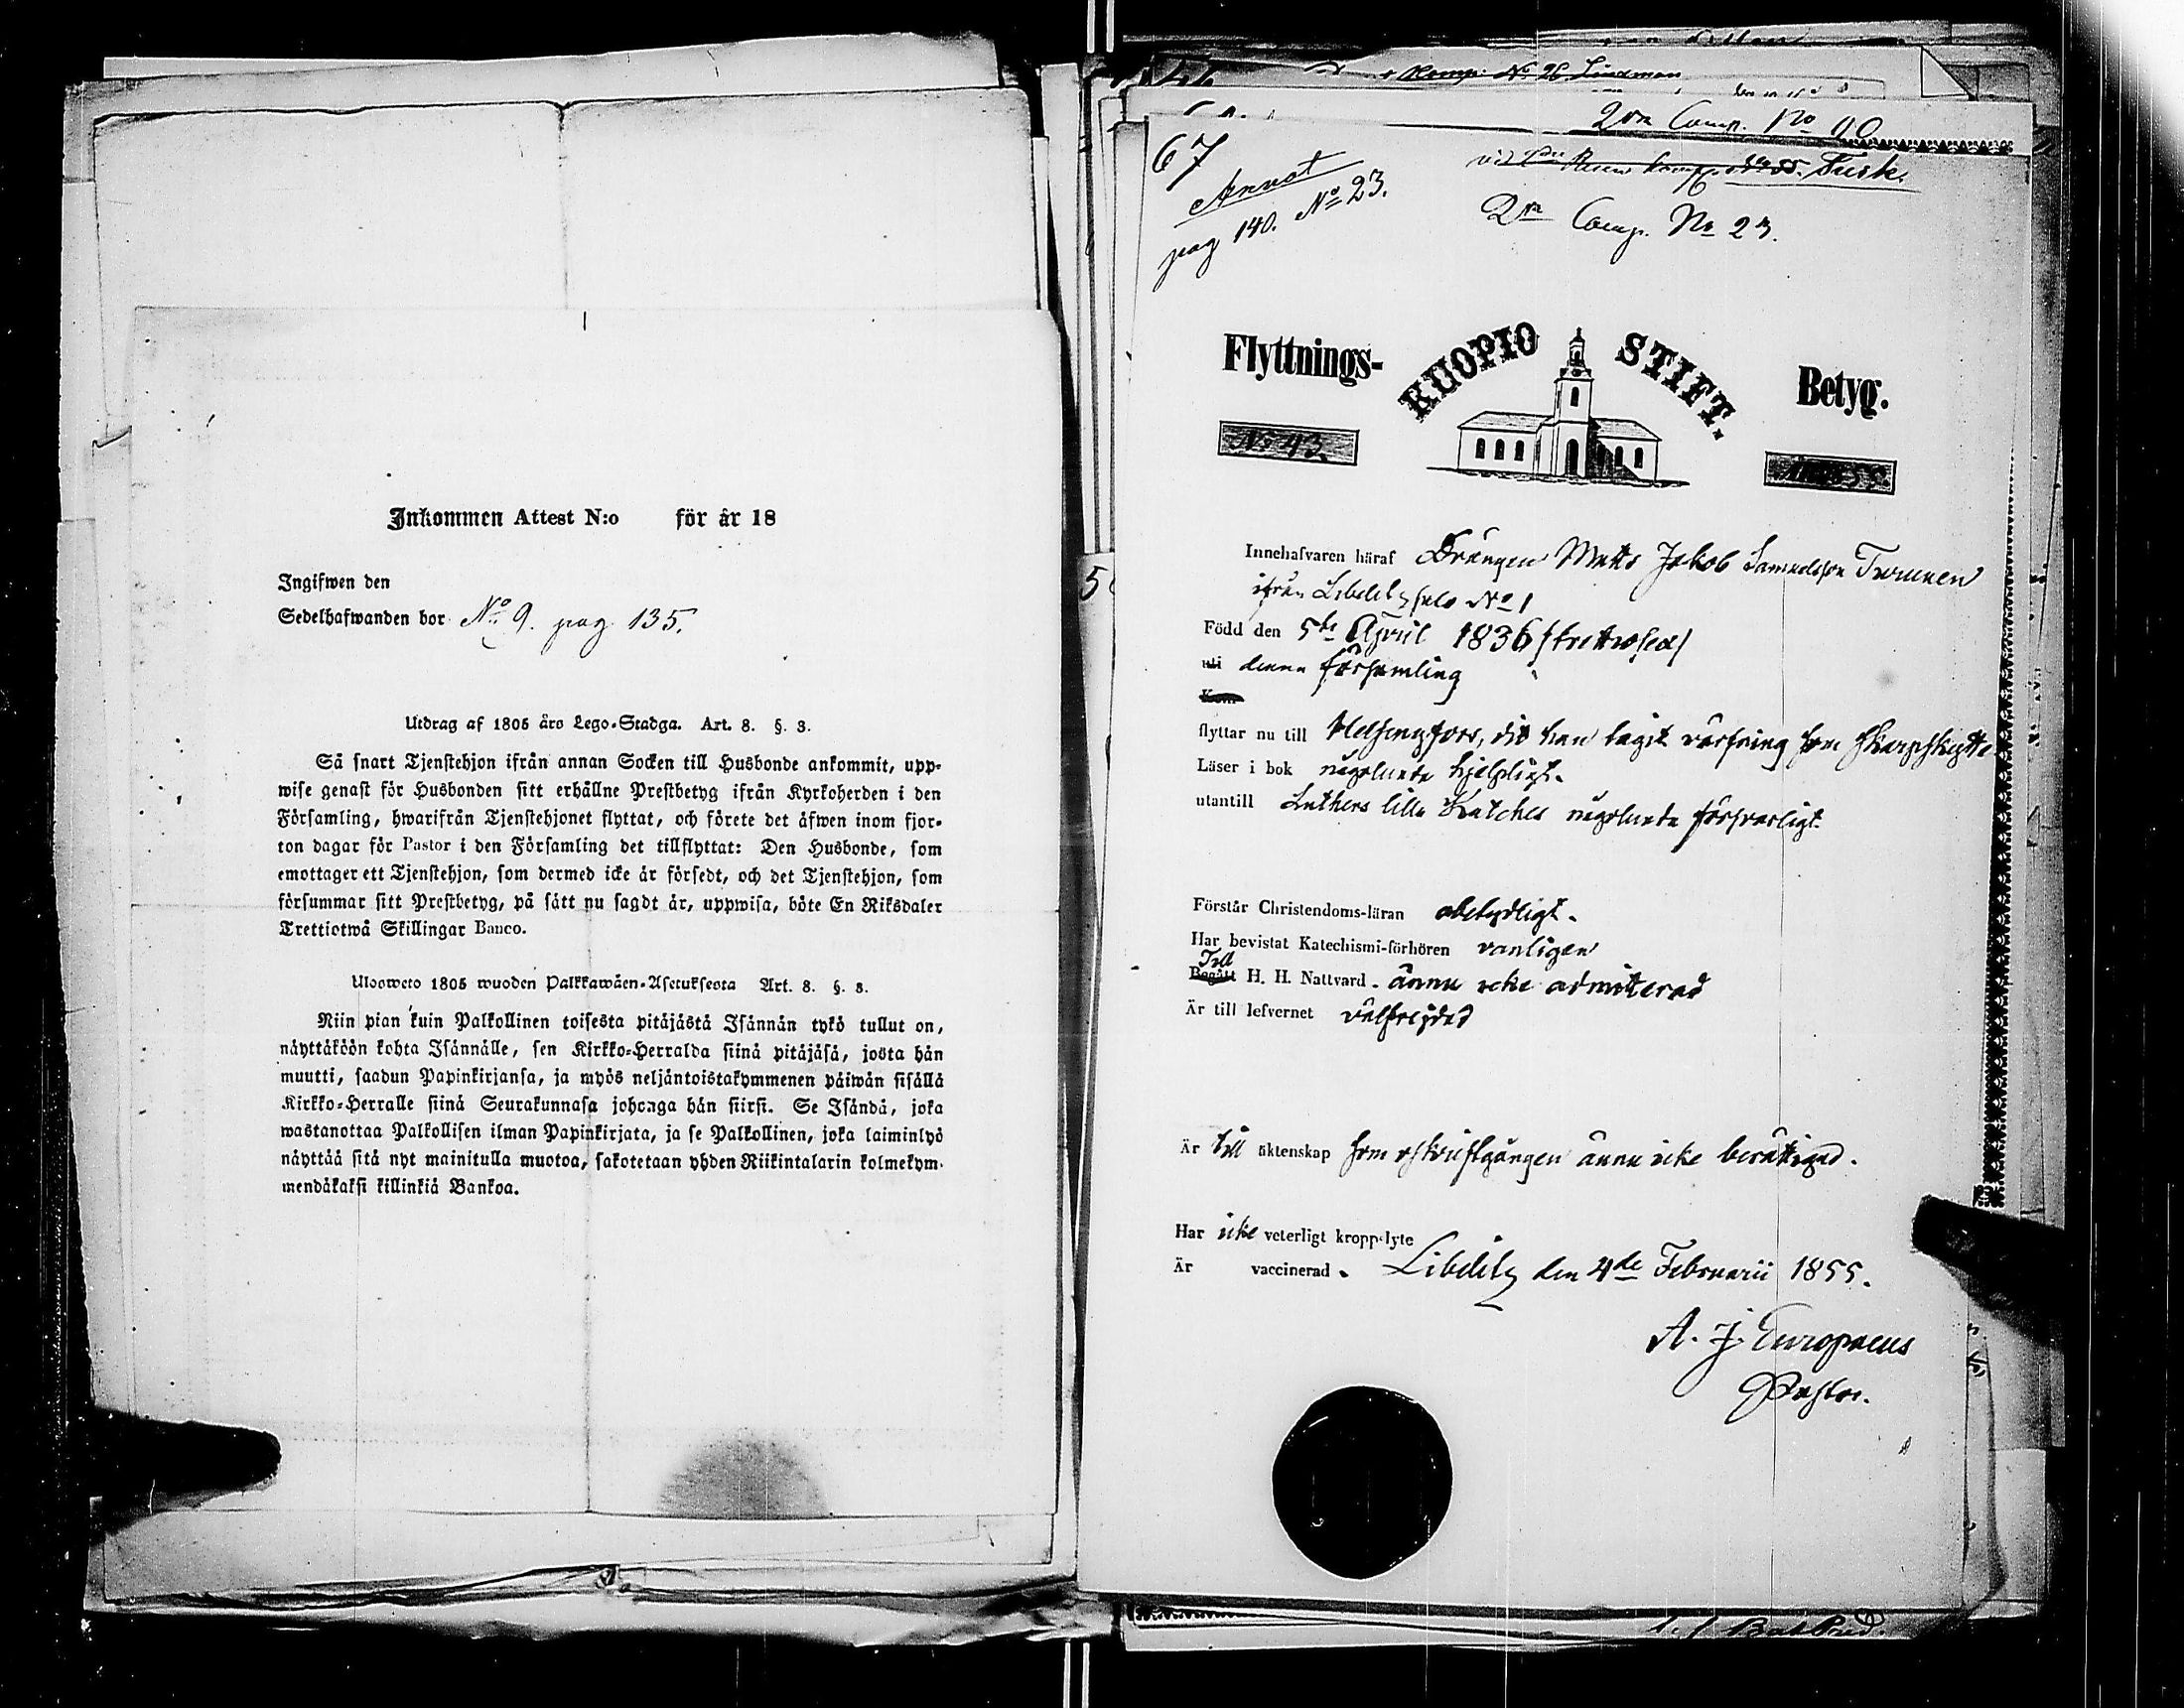 Inkommen Attest N:o för år 18
Ingifwen den
Sedelhafwanden bor No 9. pag 135.
Utdrag af 1805 års Lego-Stadga. Art. 8. §. 3.
Så snart Tjenstehjon ifrån annan Socken till Husbonde ankommit, upp-
wise genast för Husbonden sitt erhållne Prestbetyg ifrån Kyrkoherden i den
Församling, hwarifrån Tjenstehjonet flyttat, och förete det äfwen inom fjor-
ton dagar för Pastor i den Församling det tillflyttat: Den Husbonde, som
emottager ett Tjenstehjon, som dermed icke är försedt, och det Tjenstehjon, som
försummar sitt Prestbetyg, på sätt nu sagdt är, uppwisa, böte En Riksdaler
Trettiotwå Skillingar Banco.
Ulosweto 1805 wuoden Palkkawäen-Asetuksesta Art. 8. §. 3.
Niin pian kuin Palkollinen toisesta pitäjästä Isännän tykö tullut on,
näyttäköön kohta Isännälle, sen Kirkko-Herralda siinä pitäjäsä, josta hän
muutti, saadun Papinkirjansa, ja myös neljäntoistakymmenen päiwän sisällä
Kirkko-Herralle siinä Seurakunnasa johonga hän siirsi. Se Isändä, joka
wastanottaa Palkollisen ilman Papinkirjata, ja se Palkollinen, joka laiminlyö
näyttää sitä nyt mainitulla muotoa, sakotetaan yhden Riikintalarin kolmekym-
mendäkaksi killinkiä Bankoa.
Komp. No 26 Lindman
2dra Comp. No 90
67
Annot
pag 140. No 23.
Rusk.
2ra Comp. No 23.
Flyttnings- KUOPIO STIFT. Betyg.
No 43.
Innehafvaren häraf Drängen Matts Jakob Samuelsson Turunen
ifrån Libelits by No 1
Född den 5te April 1836 /trettiosex/
uti denna församling
Kom
flyttar nu till Helsingfors, dit han tagit värfning som Skarpskytte
Läser i bok någolunda hjelpligt.
utantill Luthers lilla Katches någolunda försvarligt
Förstår Christendoms-läran obetydligt.
Har bevistat Katechismi-förhören vanligen
Till
Begått H. H. Nattvard. ännu icke admitterad
Är till lefvernet välfrejdad
Är till äktenskap som oskriftgången ännu icke berättigad.
Har icke veterligt kroppslyte
Är vaccinerad. Libelits den 4de Februarii 1855.
A. J. Europaeus
Pastor.